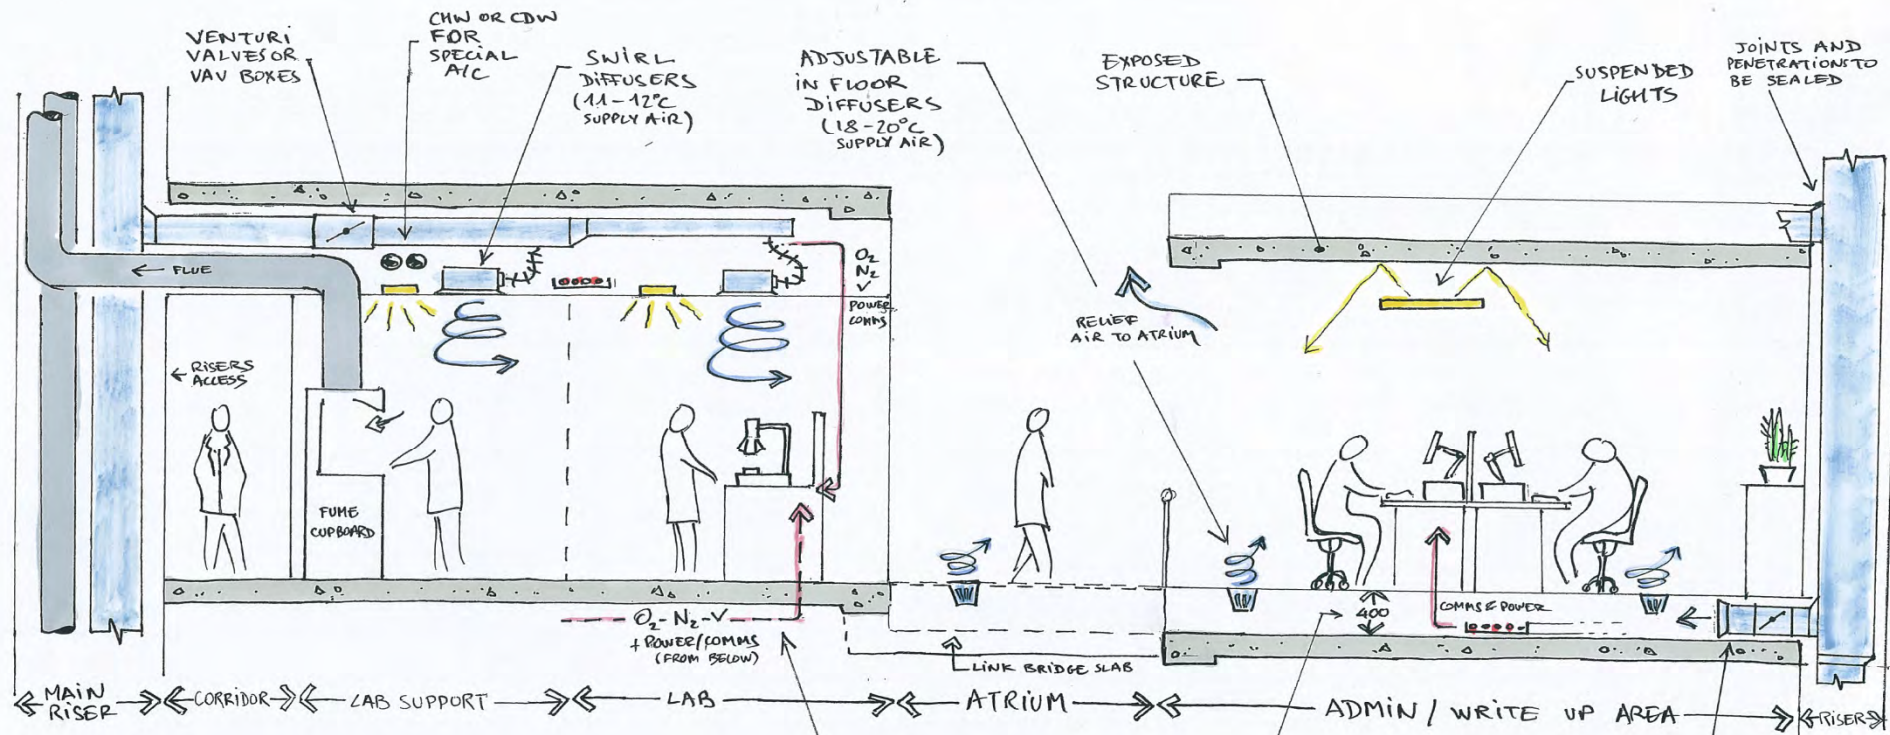 VENTURI
VALVES OR
VAV BOXES
CHW OR CDW
FOR
SPECIAL
A/C
SWIRL
DIFFUSERS
(11-12°C
SUPPLY AIR)
ADJUSTABLE
IN FLOOR
DIFFUSERS
(18-20°C
SUPPLY AIR)
EXPOSED
STRUCTURE
SUSPENDED
LIGHTS
JOINTS AND
PENETRATIONS TO
BE SEALED
FLUE
O2
N2
V
POWER
COMMS
RELIEF
AIR TO ATRIUM
RISERS
ACCESS
FUME
CUPBOARD
O2-N2-V
+ POWER/COMMS
(FROM BELOW)
LINK BRIDGE SLAB
400
COMMS & POWER
MAIN
RISER
CORRIDOR
LAB SUPPORT
LAB
ATRIUM
ADMIN / WRITE UP AREA
RISER